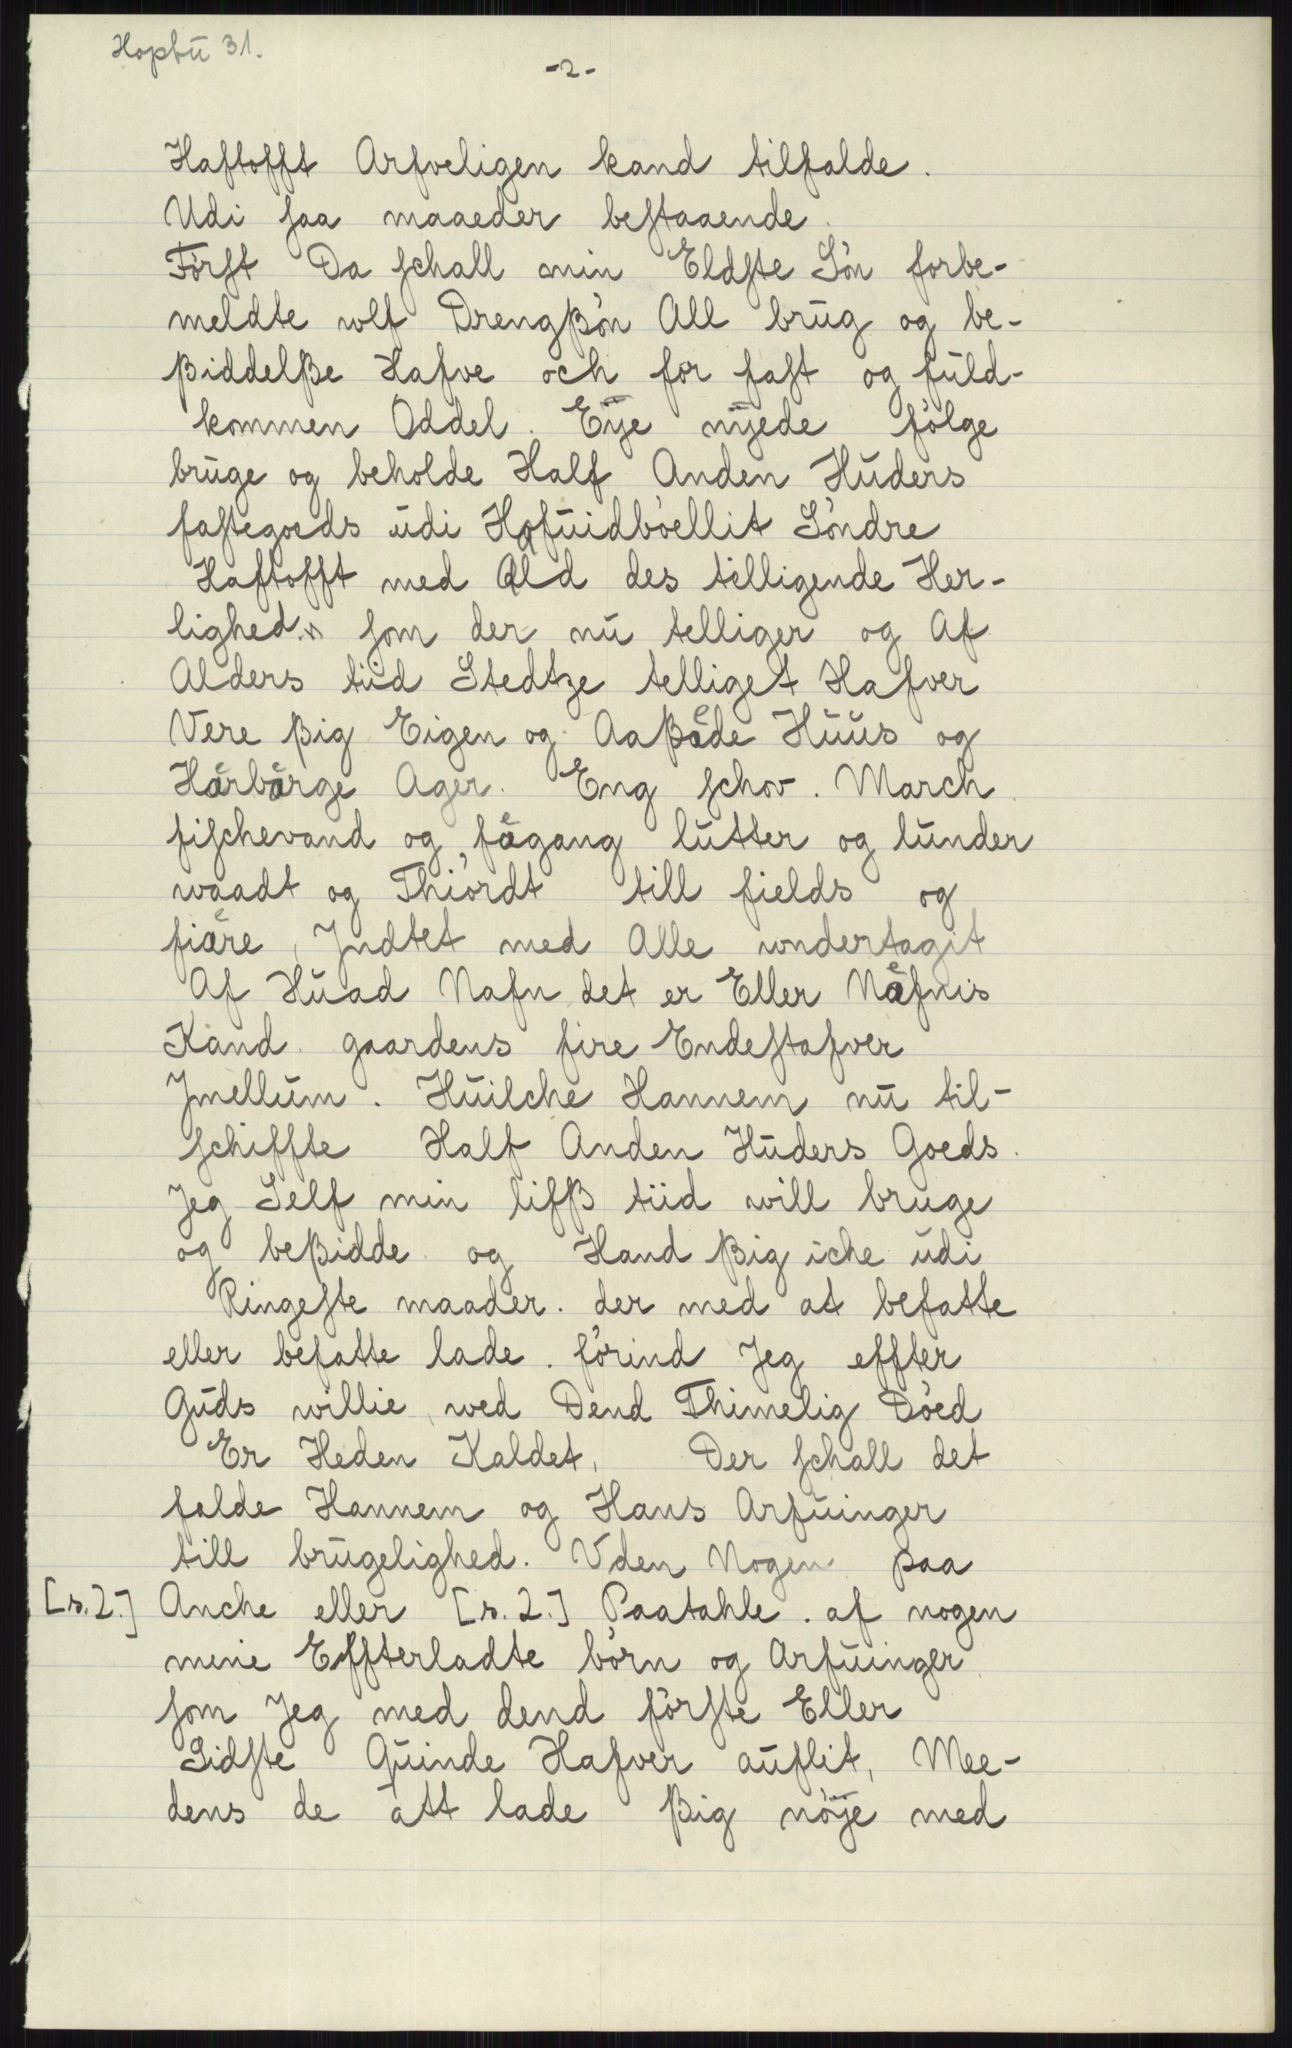 Hopbū 31.
-2-
Haftofft Arfveligen kand tilfalde.
Udi saa maaeder bestaaende.
Först Da schall min Eldste Sön forbe-
meldte wlf Drengßön All brūg og be-
ßiddelße Hafve och for fast og fūld-
kommen Oddel. Eÿe nÿede fölge
brūge og beholde Half Anden Hūders
fastegoeds ūdi Hofūidböellit Söndre
Haftofft med Ald des tilligende Her-
lighed.n som der nū telliger og Af
Alders tiid Stedtze telliget Hafver
Vere ßig Eigen og Aaßaͤde Hūūs og
Haͤrbaͤrge Ager. Eng schov. March
fischevand og faͤgang lūtter og lūnder
waadt og Thiördt till fields og
fiaͤre, Jndtet med Alle wndertagit
Af Hūad Nafn det er Eller Naͤfnis
Kand. gaardens fire Endestafver
Jmellūm. Hūilche Hannem nū til-
schiffte Half Anden Hūders Goeds.
Jeg Self min lifß tiid will bruge
og beßidde og Hand ßig iche ūdi
Ringeste maader. der med at befatte
eller befatte lade. förind Jeg effter
Gūds willie, wed Dend Thimelig Döed
Er Heden Kaldet, Der schall det
falde Hannem og Hans Arfūinger
till brūgelighed. Vden Nogen paa
[s.2.] Anche eller [s.2.] Paatahle. af nogen
mine Effterladte börn og Arfūinger
som Jeg med dend förste Eller
Sidste Qūinde Hafver aūflit, Mee-
dens de att lade ßig nöÿe med